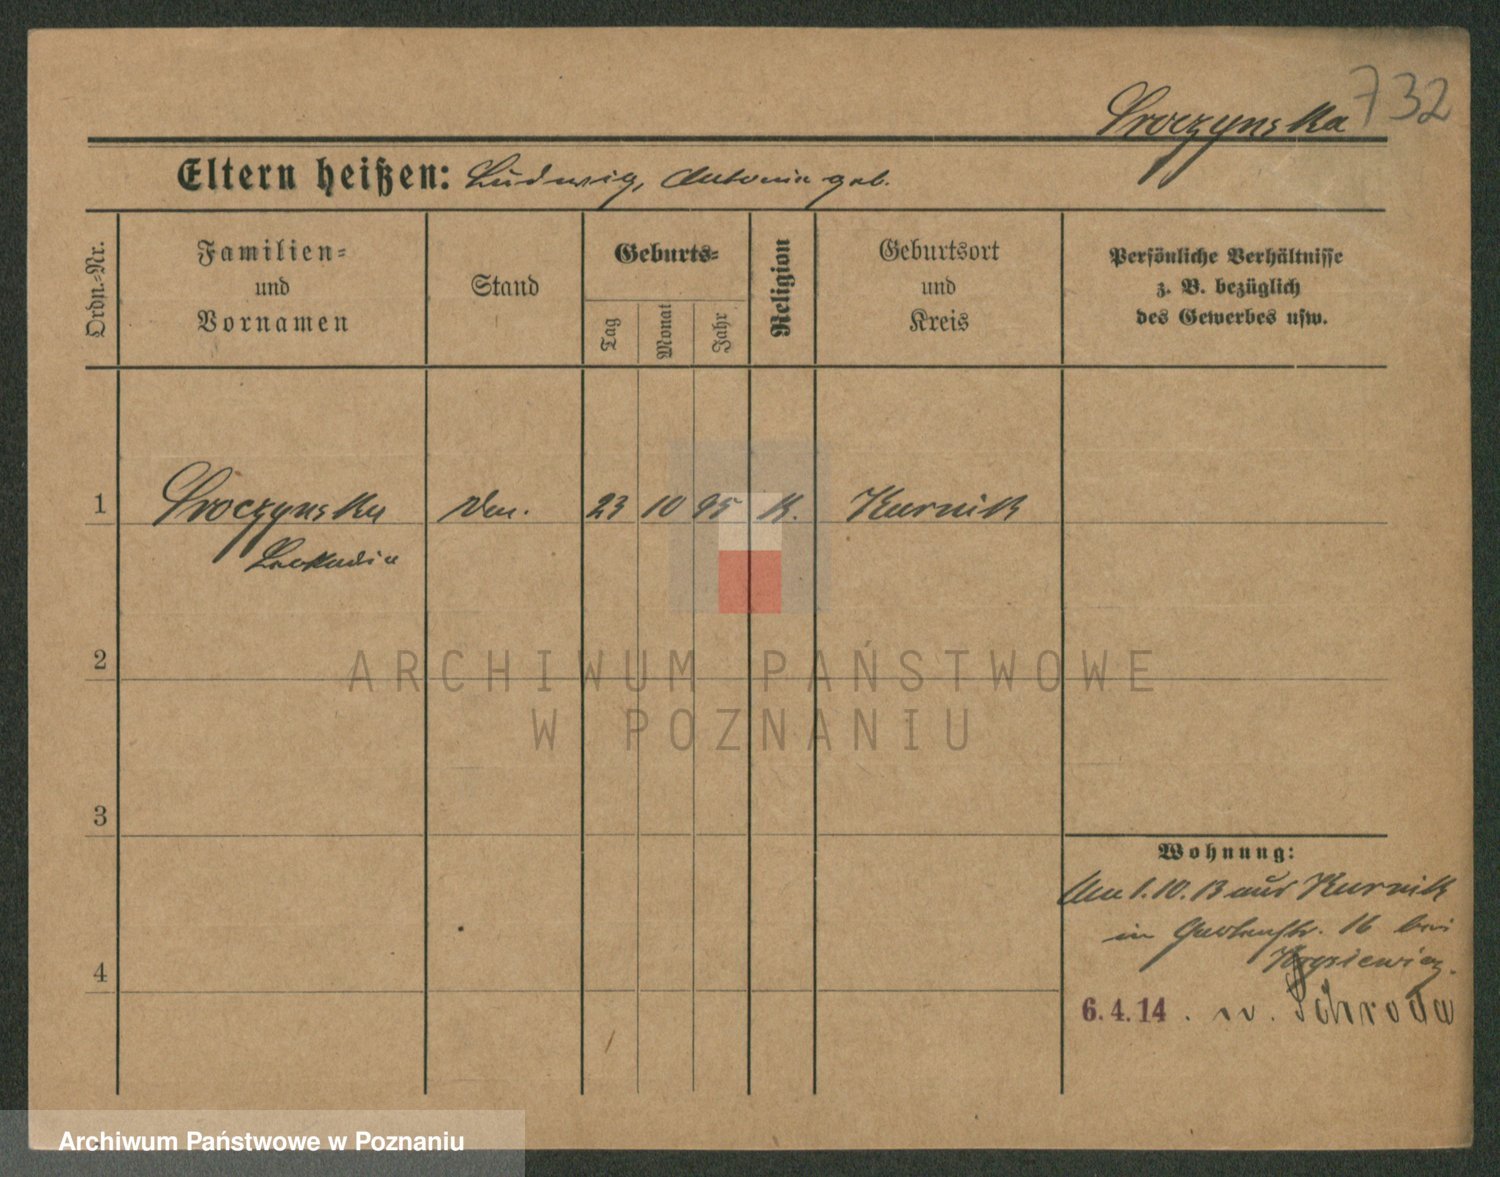 732
Sroczynska
Eltern heißen: Ludwig, Antonie geb.
Ordn.-Nr.
Familien-
und
Vornamen
Stand
Geburts-
Tag
Monat
Jahr
Religion
Geburtsort
und
Kreis
Persönliche Verhältnisse
z. B. bezüglich
des Gewerbes usw.
1 Sroczynska 23 10 95 K. Kurnik
Leokadia
2
ARCHIWUM PAŃSTWOWE
W POZNANIU
3
Wohnung:
1.10.13 aus Kurnik
in Gartenstr. 16 bei
4
6.4.14. n. Schroda
Archiwum Państwowe w Poznaniu